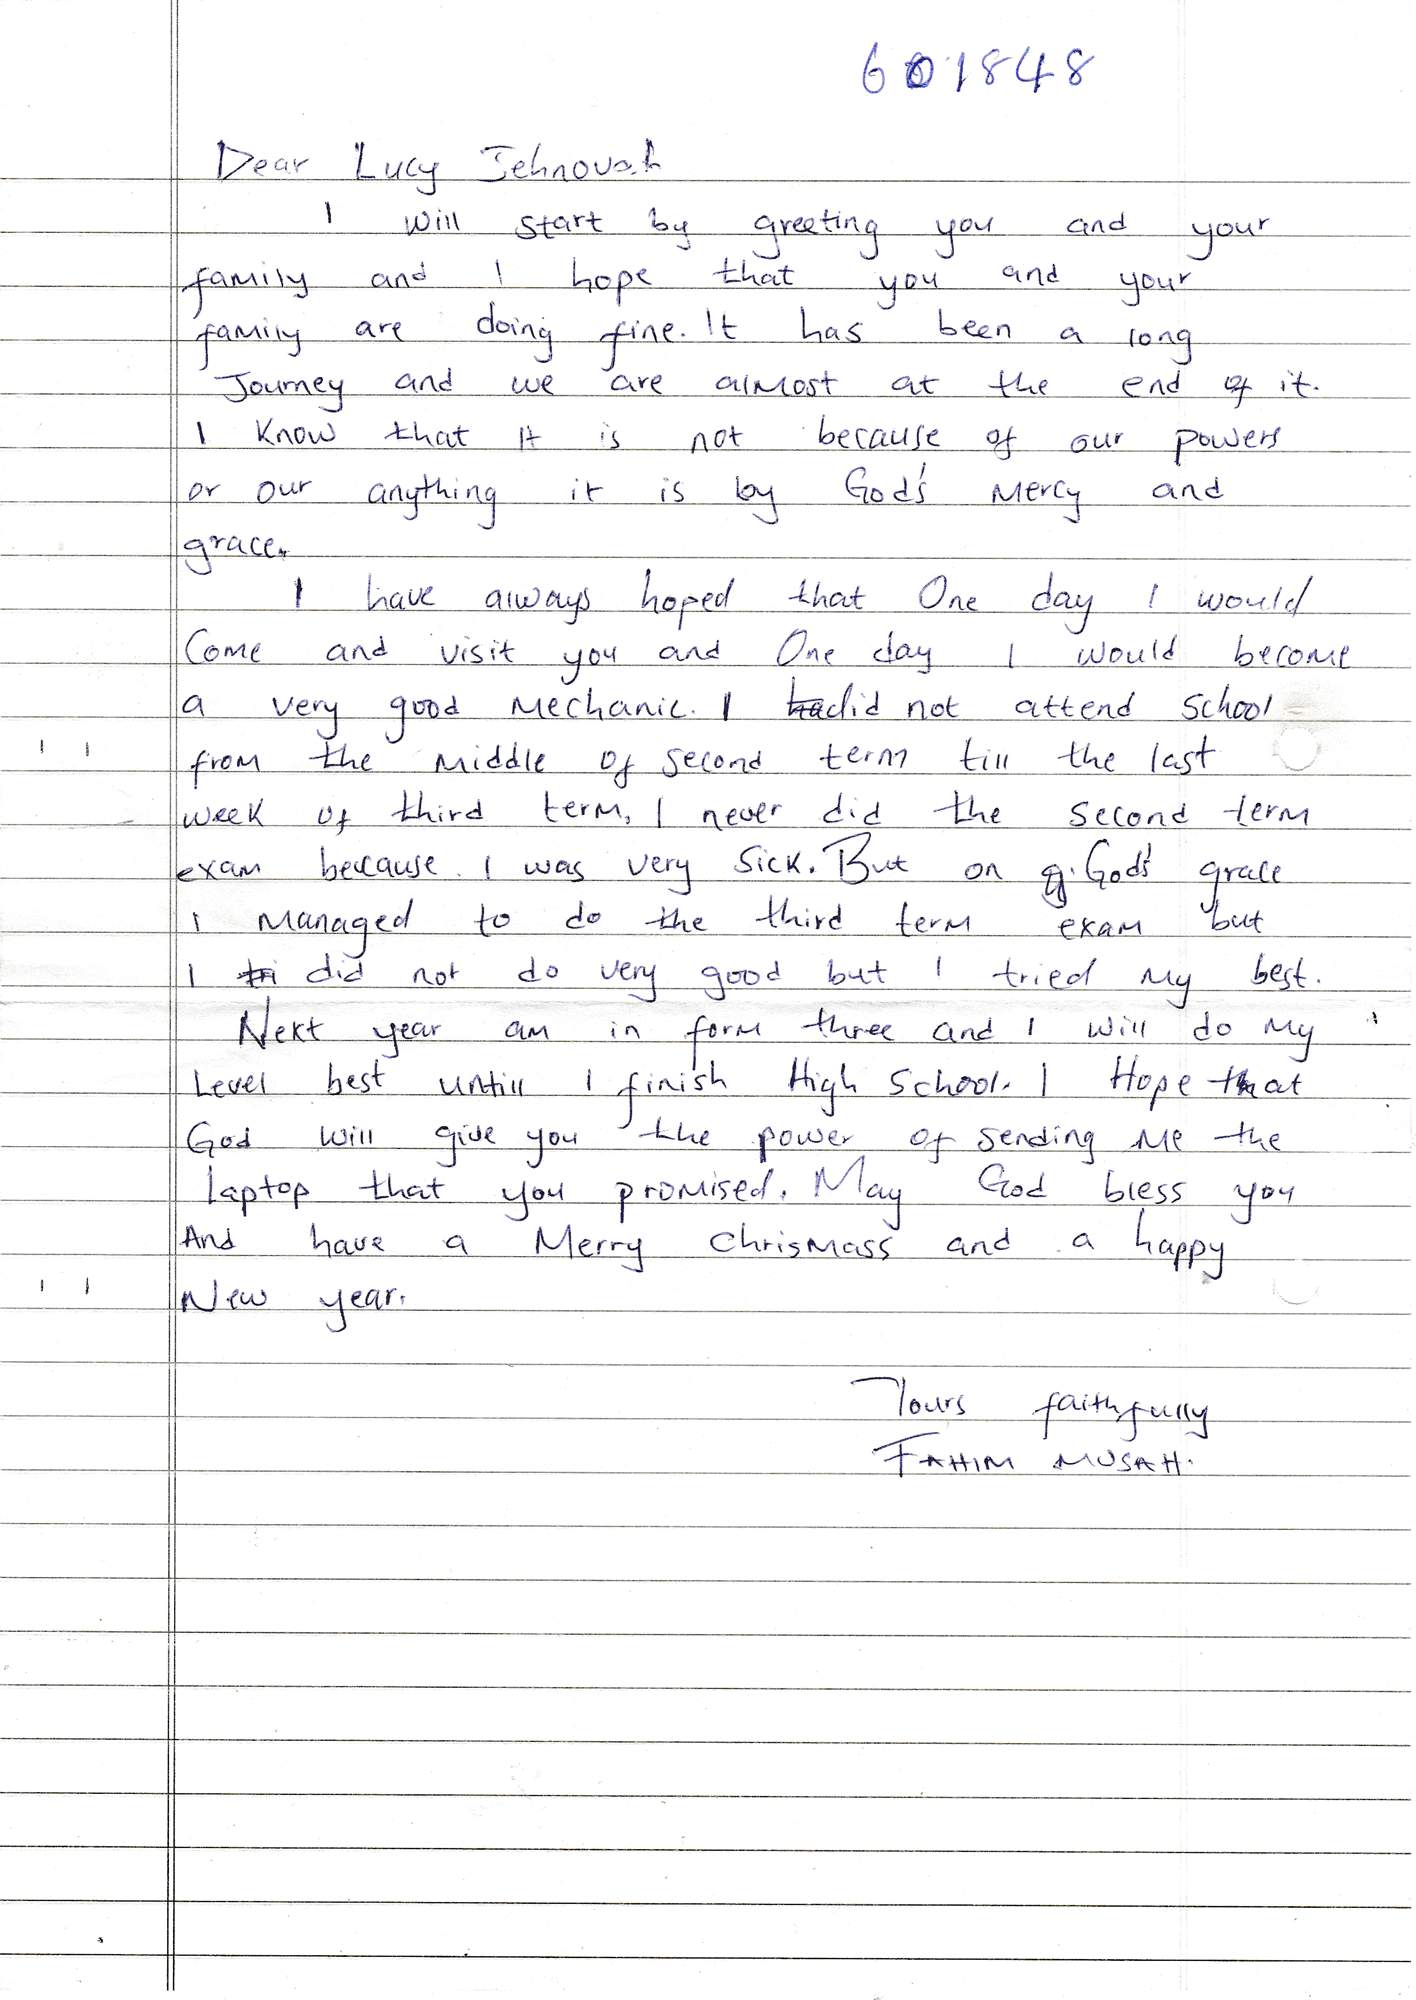 601848
Dear Lucy Jehnovah
I will start by greeting you and your
family and I hope that you and your
family are doing fine. It has been a long
Journey and we are almost at the end of it.
I know that It is not because of our powers
or our anything it is by God's Mercy and
grace.
I have always hoped that One day I would
Come and visit you and One day I would become
a very good Mechanic. I did not attend School
from the Middle of second term till the last
week of third term, I never did the second term
exam because I was very Sick. But on God's grace
I Managed to do the third term exam but
I did not do very good but I tried My best.
Next year am in form three and I will do My
Level best untill I finish High School. I Hope that
God will give you the power of sending Me the
laptop that you promised. May God bless you
And have a Merry Chrismass and a happy
New year.
Yours faithfully
FAHIM MUSAH.